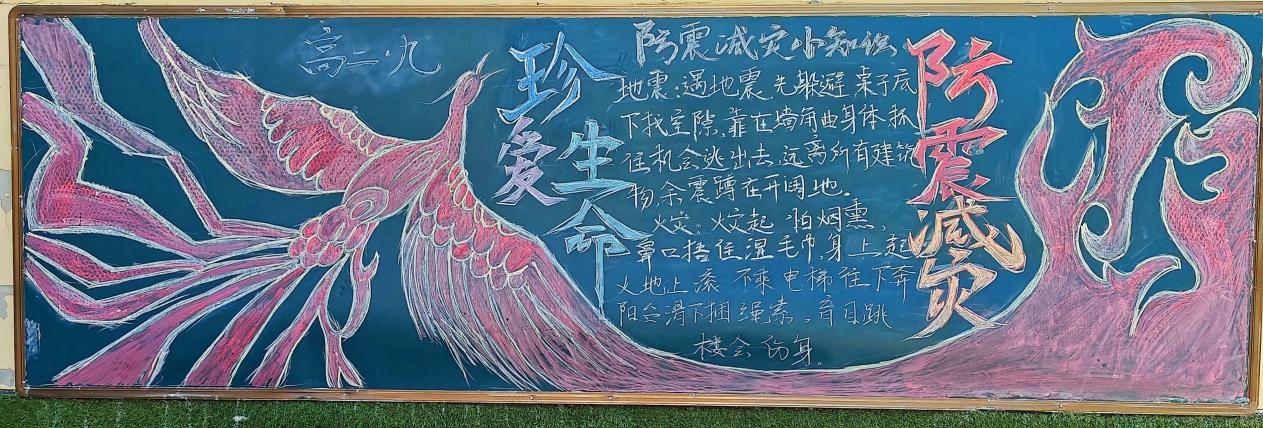 高二·九
珍爱
生命
防震减灾小知识
地震:遇地震,先躲避,桌子底
下找空隙,靠在墙角曲身体,抓
住机会逃出去,远离所有建筑
物,余震蹲在开阔地。
火灾。火灾起,怕烟熏,
鼻口捂住湿毛巾,身上起
火地上滚,不乘电梯往下奔
阳台滑下捆绳索,盲目跳
楼会伤身。
防震减灾